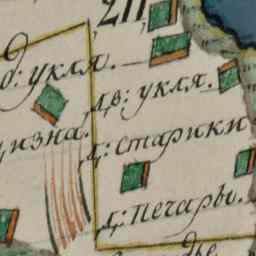 2П
д: укля.
д,в: укля.
изна.
д,: старики
д,: печары.